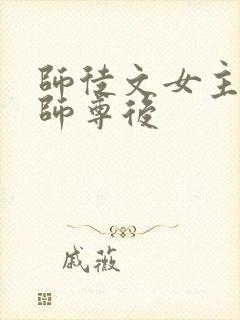 師徒文女主
師尊後
戚薇